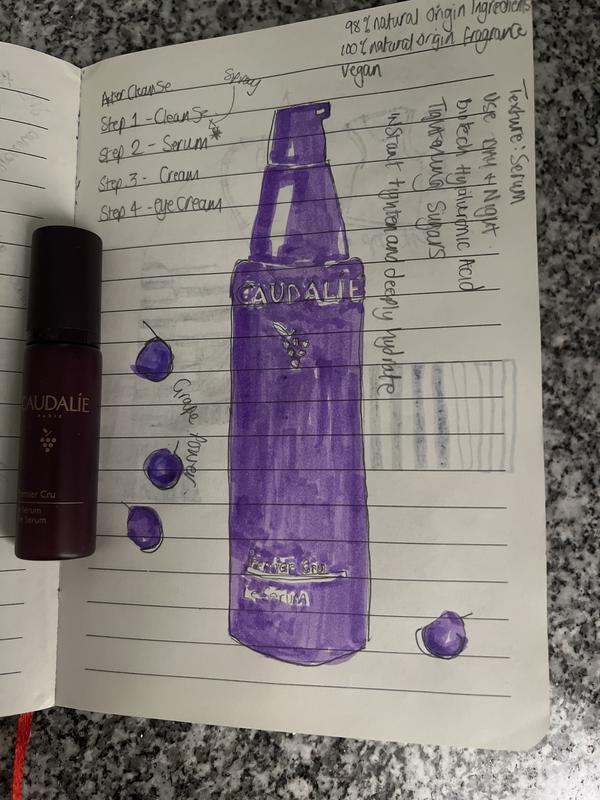 98% natural Origin Ingredients
100% natural origin fragrance
Vegan
After Cleanse
Spray
Step 1 - Cleanse
Step 2 - Serum*
Step 3 - Cream
Step 4 - eye Cream
Texture: Serum
Use Day + Night.
Biotech Hyaluronic Acid
Tightening Sugars
instant tighten and deeply hydrate
CAUDALÍE
Grape Power.
Premier Cru
Le Serum
CAUDALÍE
PARIS
Premier Cru
Sérum
Serum